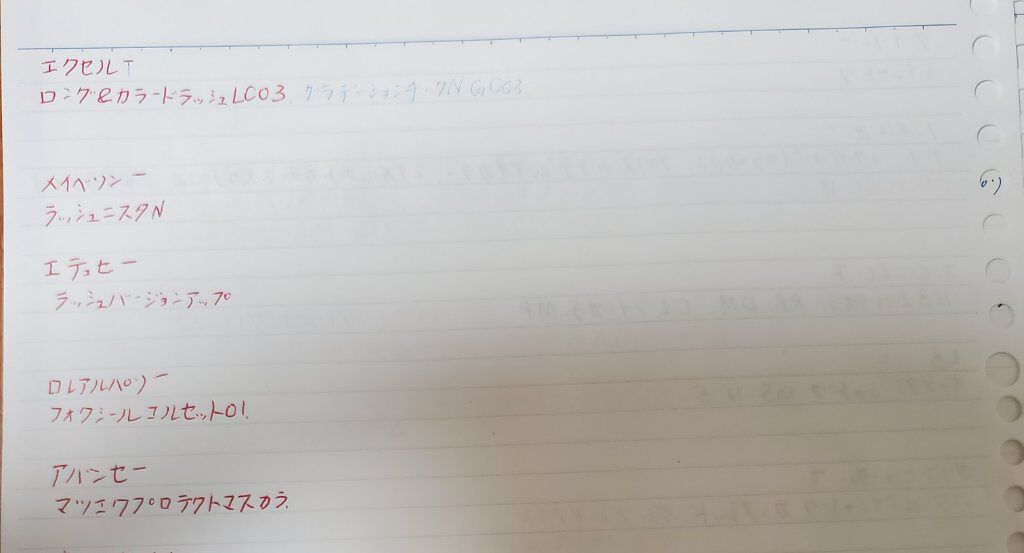 エクセルT
ロング&カラードラッシュLC03. グラデーションチークN GC03
メイベリンー
ラッシュニスタN
エテュセー
ラッシュバージョンアップ
ロレアルパリー
フォクシールコルセット01.
アバンセー
マツエクプロテクトマスカラ.